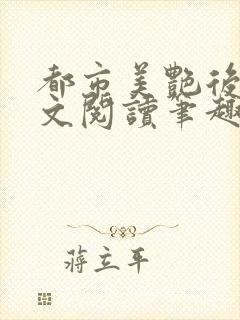 都市美艷後
文閱讀筆趣
蔣立平